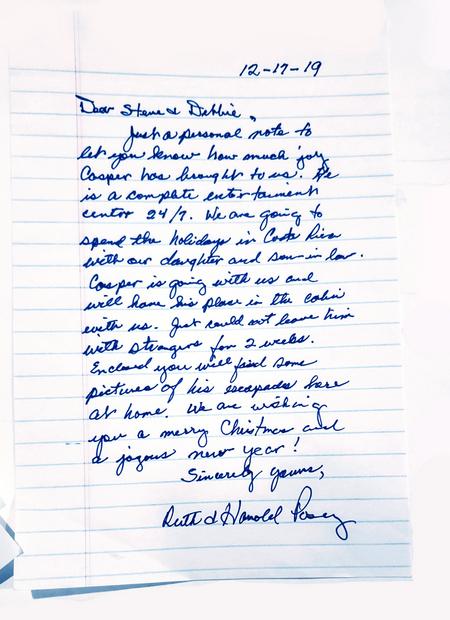 12-17-19
Dear Steve & Debbie,
Just a personal note to
let you know how much joy
Casper has brought to us. He
is a complete entertainment
center 24/7. We are going to
spend the holidays in Costa Rica
with our daughter and son-in-law.
Casper is going with us and
will have his place in the cabin
with us. Just could not leave him
with strangers for 2 weeks.
Enclosed you will find some
pictures of his escapades here
at home. We are wishing
you a merry Christmas and
a joyous new year!
Sincerely yours,
Ruth & Harold Posey